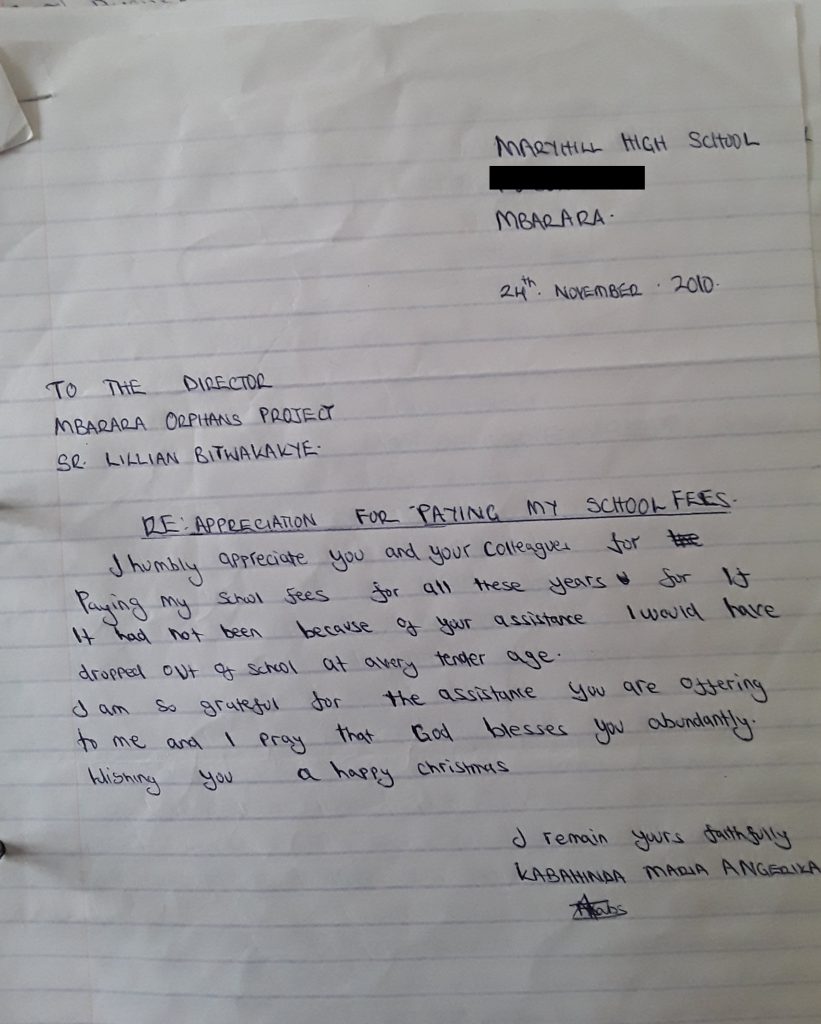 MARYHILL HIGH SCHOOL
MBARARA.
24th. NOVEMBER. 2010.
TO THE DIRECTOR
MBARARA ORPHANS PROJECT
SR. LILLIAN BITWAKAKYE.
RE: APPRECIATION FOR PAYING MY SCHOOL FEES.
I humbly appreciate you and your colleagues for
Paying my school fees for all these years for If
It had not been because of your assistance I would have
dropped out of school at avery tender age.
I am so grateful for the assistance you are offering
to me and I pray that God blesses you abundantly.
Wishing you a happy christmas
I remain yours faithfully
KABAHINDA MARIA ANGERIKA